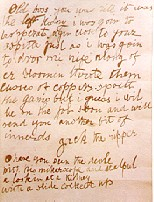 Old boss you was rite it was
the left kidny i was goin to
hoperate agin close to your
ospitle just as i was goin
to dror mi nife along of
er bloomin throte them
cusses of coppers spoilt
the game but i guess i wil
be on the job soon and will
send you another bit of
innerds
Jack the ripper
O have you seen the devle
with his mikerscope and scalpul
a lookin at a kidney
with a slide cocked up